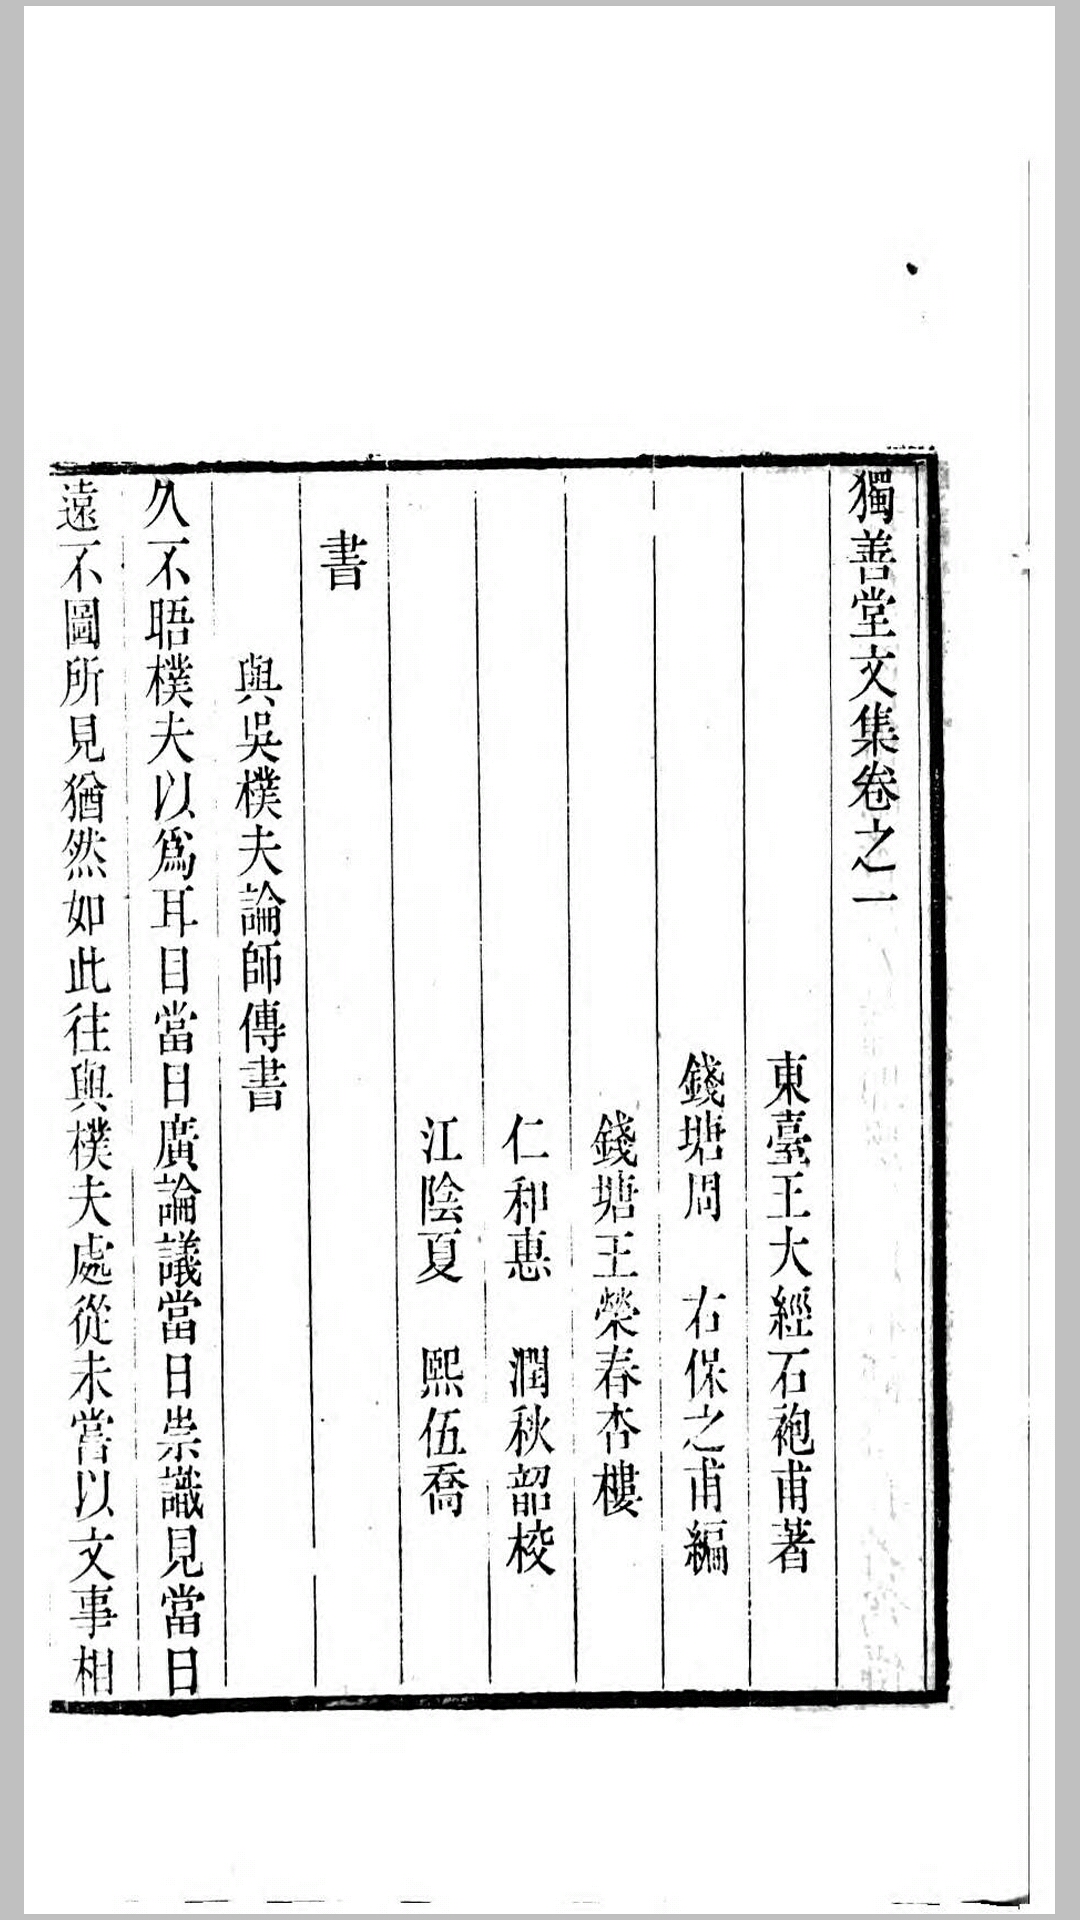 獨善堂文集卷之一
東臺王大經石袍甫著
錢塘周　右保之甫編
錢塘王榮春杏樓
仁和惠　潤秋韶校
江陰夏　熙伍喬
書
與吳樸夫論師傳書
久不晤樸夫以爲耳目當日廣論議當日崇識見當日
遠不圖所見猶然如此往與樸夫處從未嘗以文事相